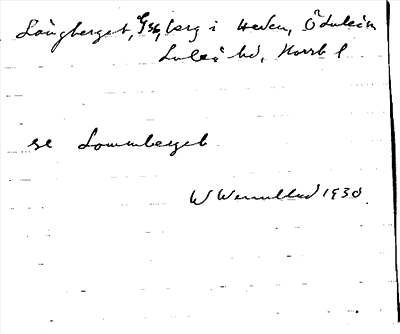 Långberget, berg i Heden, Ö Luleå s
Luleå hd, Norrb l
se Lommberget
W Wennblad 1930